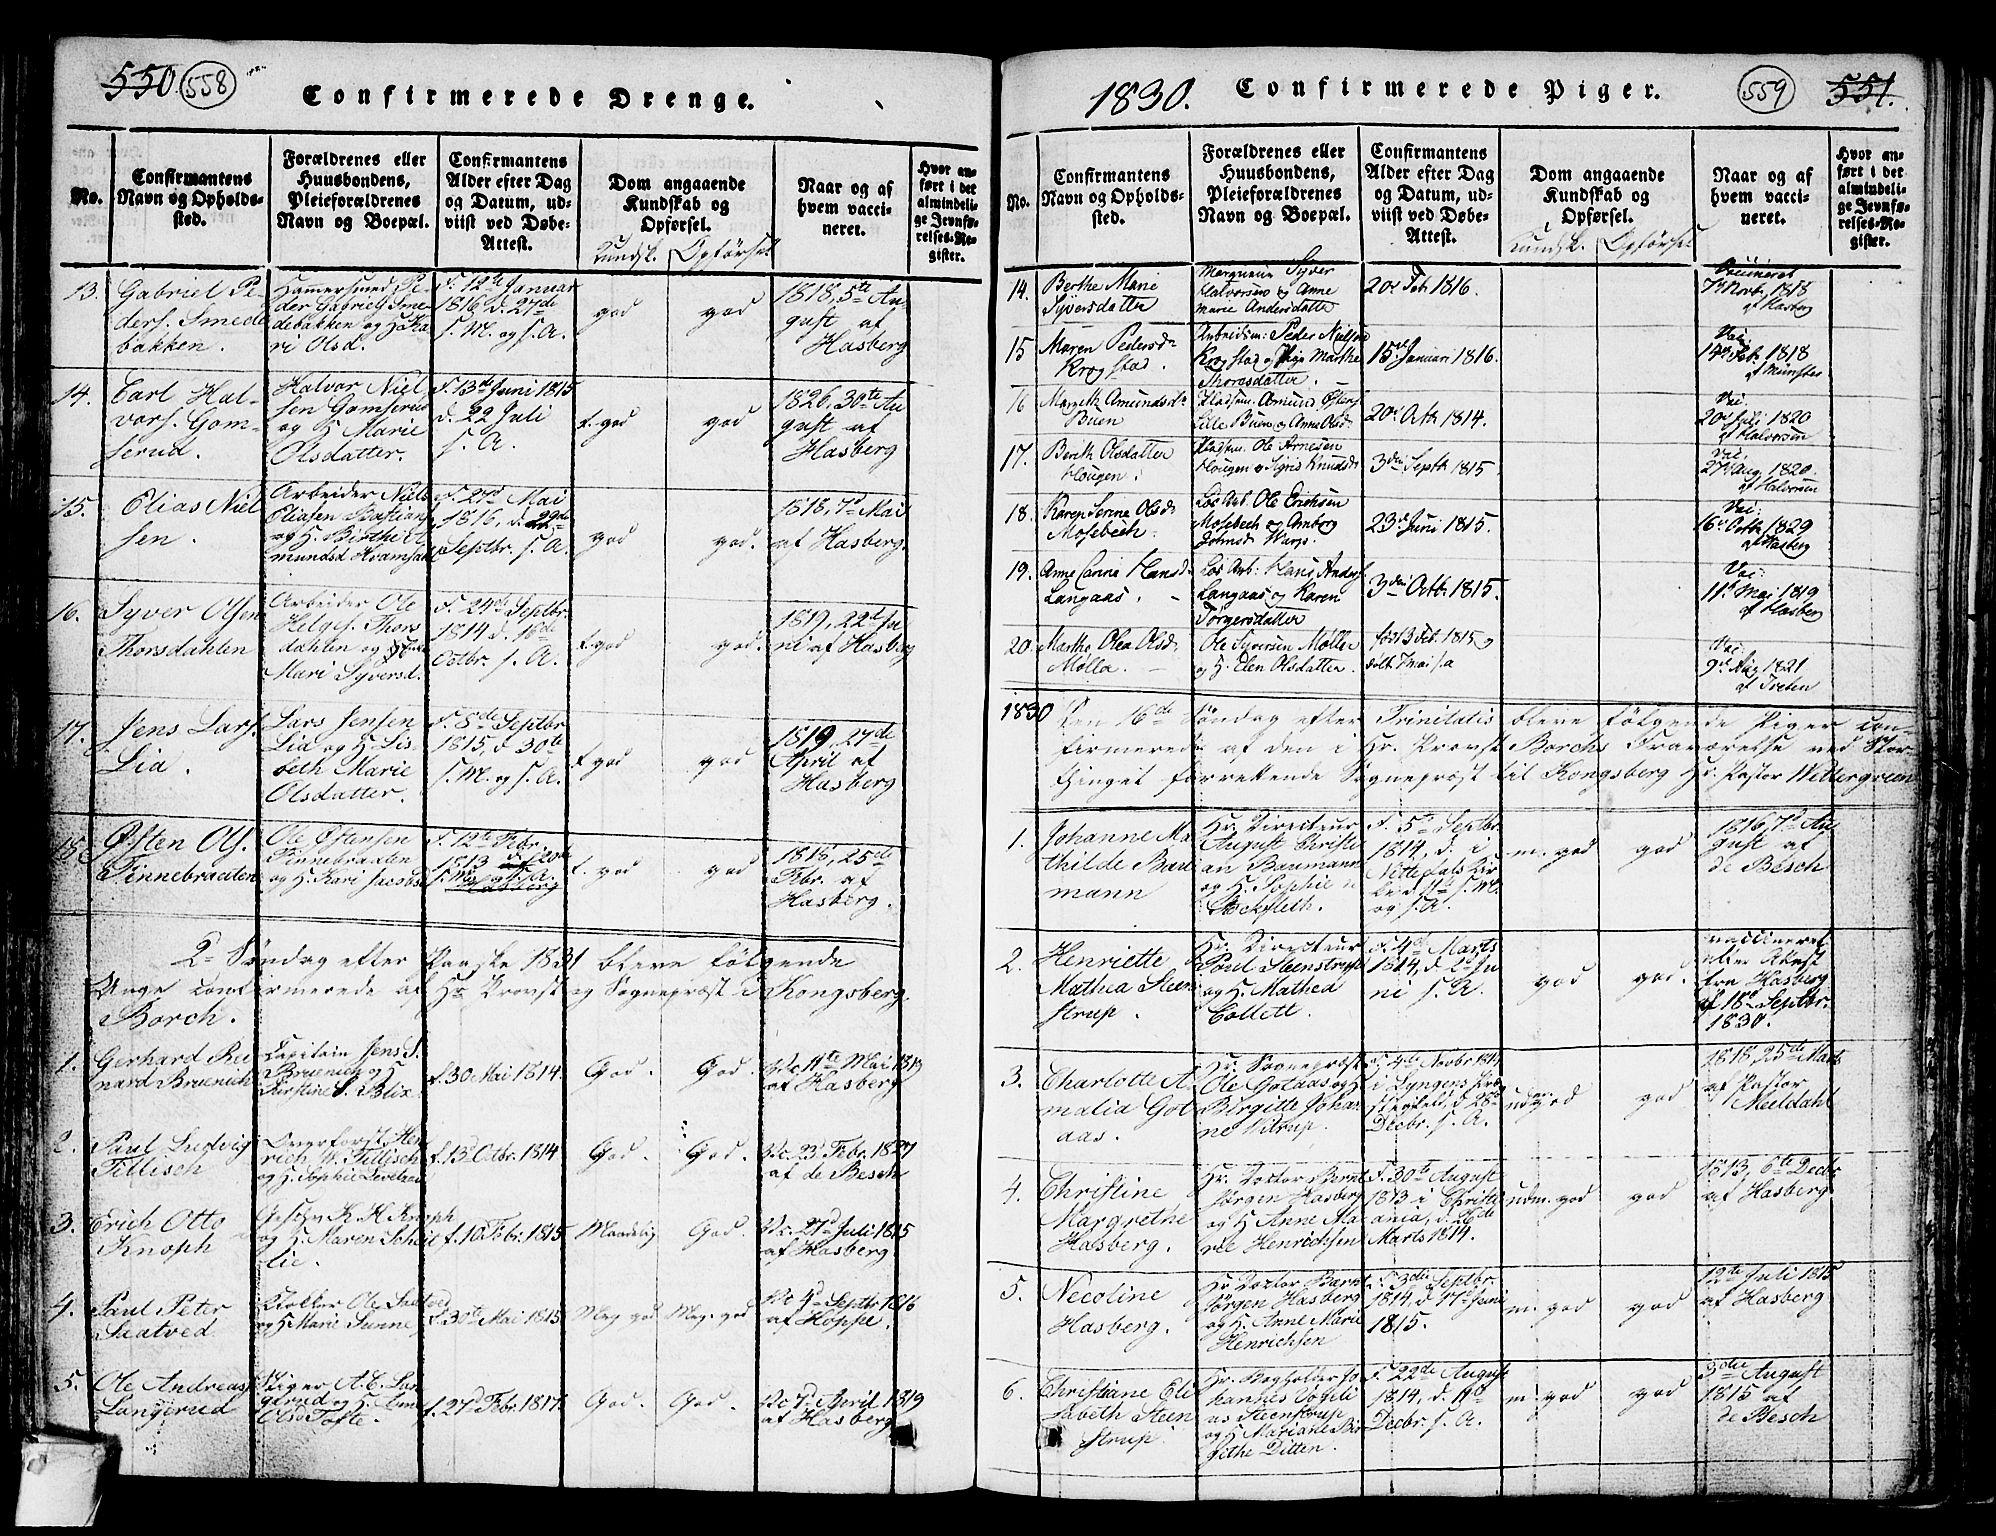 550. 558
Confirmerede Drenge.
No.
Confirmantens
Navn og Opholds-
sted.
Forældrenes eller
Huusbondens,
Pleieforældrenes
Navn og Boepæl.
Confirmantens
Alder efter Dag
og Datum, ud-
viist ved Døbe-
Attest.
Dom angaaende
Kundskab og
Opførsel.
Kundsk. Opførsel
Naar og af
hvem vacci-
neret.
Hvor an-
ført i det
almindeli-
ge Jevnfø-
relses-Re-
gister.
13.
Gabriel Pe-
ders. Smede
bakken.
Hamersmed Pe-
der Gabriels Sme-
debakken og H. Ka-
ri Olsd.
f. 12te Januar
1816 d. 27de
s. M. og s. A.
god
god
1818, 5te Au-
gust af
Hasberg
14.
Carl Hal-
vors. Gom-
serud.
Halvor Niel-
sen Gomserud
og H. Marie
Olsdatter.
f. 13de Juni 1815
d. 22 Juli
s. A.
t. god
god
1826, 30te Au-
gust af
Hasberg
15.
Elias Niel-
sen.
Arbeider Niels
Eliasen Bastian
og H. Birthe A-
mundsd.
f. 27d Mai
1816, d. 22de
Septbr. s. A.
god
god.
1818, 7d Mai
af Hasberg.
16.
Syver Olsen
Thorsdahlen
Arbeider Ole
Helges. Thors
dahlen og
Mari Syversd.
f. 24de Septbr.
1814 d. 16de
Octbr. s. A.
t. god
god.
1819, 22de Ju-
ni af Hasberg
17.
Jens Lars.
Lia.
Lars Jensen
Lia og H. Lis-
beth Marie
Olsdatter.
f. 5de Septbr
1815, d. 30te
s. M. og s. A.
t. god
god
1819, 27de
April af
Hasberg
18.
Østen Ols.
Tinnebraaten
Ole Østensen
Tinnebraaten
og H. Kari Jacobs
f. 12te Febr.
1813 d. 20de
s. M. og s. A.
t. god
god
1818, 25de
Febr. af
Hasberg.
2den Søndag efter Paaske 1831 bleve følgende
Unge confirmerede af Hr Provst og Sognepræst i Kongsberg
Borch.
1.
Gerhard Rei-
nard Bruenich
Capitain Jens S.
Bruenich og H
Kirstine S. Blix
f. 30 Mai 1814.
God.
God.
Vc. 11te Mai 1819
af Hasberg
2.
Paul Ludvig
Tillisch
Overforst. Hen
rich W. Tillisch
og H. Sophie
f. 13d Octbr. 1814
God.
God.
Vc. 23d Febr. 1827
af de Besch
3.
Erich Otto
Knoph
K. H. Knoph
og H. Maren
lie.
f. 10 Febr. 1815
Maadelig
God.
Vc. 27d Juli 1815
af Hasberg
4.
Paul Peter
Seatved
Ole Seatved
og H Marie Sunne
f. 30te Mai 1815
Meg. god
Meg. god
Vc 4d Septbr 1816
af Hoppe.
5.
Ole Andreas
Langerud
Stiger A. C. Lan
gerud og H. Anne
Olsd Tofte.
f. 27d Febr. 1817.
God.
God.
Vc 7d April 1819
af Hasberg
1830. Confirmerede Piger. 559 551.
No.
Confirmantens
Navn og Opholds-
sted.
Forældrenes eller
Huusbondens,
Pleieforældrenes
Navn og Boepæl.
Confirmantens
Alder efter Dag
og Datum, ud-
viist ved Døbe-
Attest.
Dom angaaende
Kundskab og
Opførsel.
Kundsk. Opførsel
Naar og af
hvem vacci-
neret.
Hvor an-
ført i det
almindeli-
ge Jevnfø-
relses-Re-
gister.
14.
Berthe Marie
Syversdatter
Syver
Halvorsens og Anne
Marie Andersdatter
20de Feb 1816.
Vaccineret
7de Novb. 1818
af Hasberg
15
Maren Pedersdr
Krogstad.
Arbeidsm: Peder Nielsen
Krogstad og Pige Marthe
Thoresdatter.
15de Januari 1816.
Vac:
14de Feb. 1818
af Münster
16
Margeth Amundsdr
Buen
Huusm. Amund Østens
Lille Buen og Anne Olsd
20de Octb. 1814.
Vac:
20de Juli 1820
af Halvorsen
17.
Berith Olsdatter
Hougen.
Huusm. Ole Arnesen
Hougen og Sigris Knudsdr
3die Septb. 1815.
Vac:
27d Aug 1820.
af Halvorsen
18.
Karen Serine Olsdr
Mosebech.
Løs Arb. Ole Erichsen
Mosebech og Amborg
Johnsd Warp.
23de Juni 1815.
Vac:
16de Octb. 1829
af Hasberg
19.
Anne Carine Hansdr
Langaas.
Løs Arb: Hans Anders.
Langaas og Karen
Torgersdatter
3die Octb. 1815.
Vac:
11te Mai 1819
af Hasberg
20.
Marthe Olea Olsdr
Mølla.
Ole Syversen Mølla
og H. Elen Olsdatter.
fød 13 Feb. 1815 og
døbt 7 Mai s.a
Vac:
9de Aug 1821
af Treten
1830 Den 16de Søndag efter Trinitatis bleve følgende Piger con-
firmerede af den i Hr. Provst Borchs Fraværelse ved Stor-
thinget forrettende Sognepræst til Kongsberg Hr. Pastor Wettergreen
1.
Johanne Ma
thilde Bau
mann
Hr. Directeur
August Christi
an Baumann
og H. Sophie
f. 5te Septbr.
1814, d. i
Nittedals Kir-
ke d. 11te s. M.
og s. A.
m. god
god
1816, 7d Au
gust af
de Besch
2.
Henriette
Mathea Steen
strup.
Hr. Directeur
Poul Steenstrup
og H. Mathea
Collett.
f. 4de Marts
1814, d. 2d Ju
ni s. A.
god
god.
vaccineret
efter Attest
fra Hasberg
af 18d Septbr.
1830.
3.
Charlotte A-
malia Got
aas.
Hr. Sognepræst
Ole Gotaas og H
Birgitte Johan
ne Vitrup.
f. 4de Novbr. 1814
i Lyngens
d. 28de
Decbr. s. A.
udm. god
god
1818, 25de Marts
af Pastor
Meeldahl
4.
Christine
Margrethe
Hasberg.
Hr. Doctor Bernt
Jørgen Hasberg
og H. Anne Ma
rie Henrichsen
f. 30te August
1813 i Christi
ania, d. 26de
Marts 1814.
udm. god
god
1813, 6te Decbr
af Hasberg
5.
Nicoline
Hasberg.
Hr. Doctor Bernt
Jørgen Hasberg
og H. Anne Marie
Henrichsen
f. 3die Septbr.
1814, d. 17de Juni
1815.
m. god
god
12te Juli 1815
af Hasberg
6.
Christiane Eli
sabeth Steen
strup.
Hr. Bogholder Jo
hannes Vogeli
us Steenstrup
og H. Mariane Bir
githe Ditten.
f. 22de August
1814, d. 11te
Decbr. s. A.
m. god
god
3die August
1815 af
de Besch